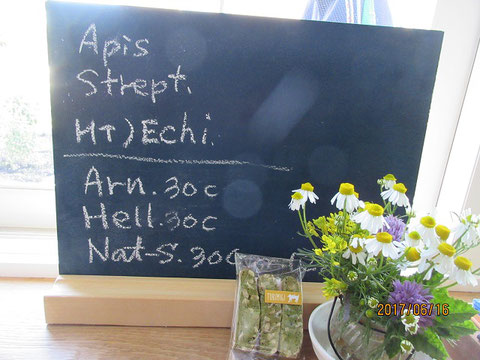 Apis
Strept.
HT) Echi.
Arn. 30c
Hell. 30c
Nat-S. 30c
2017/06/16